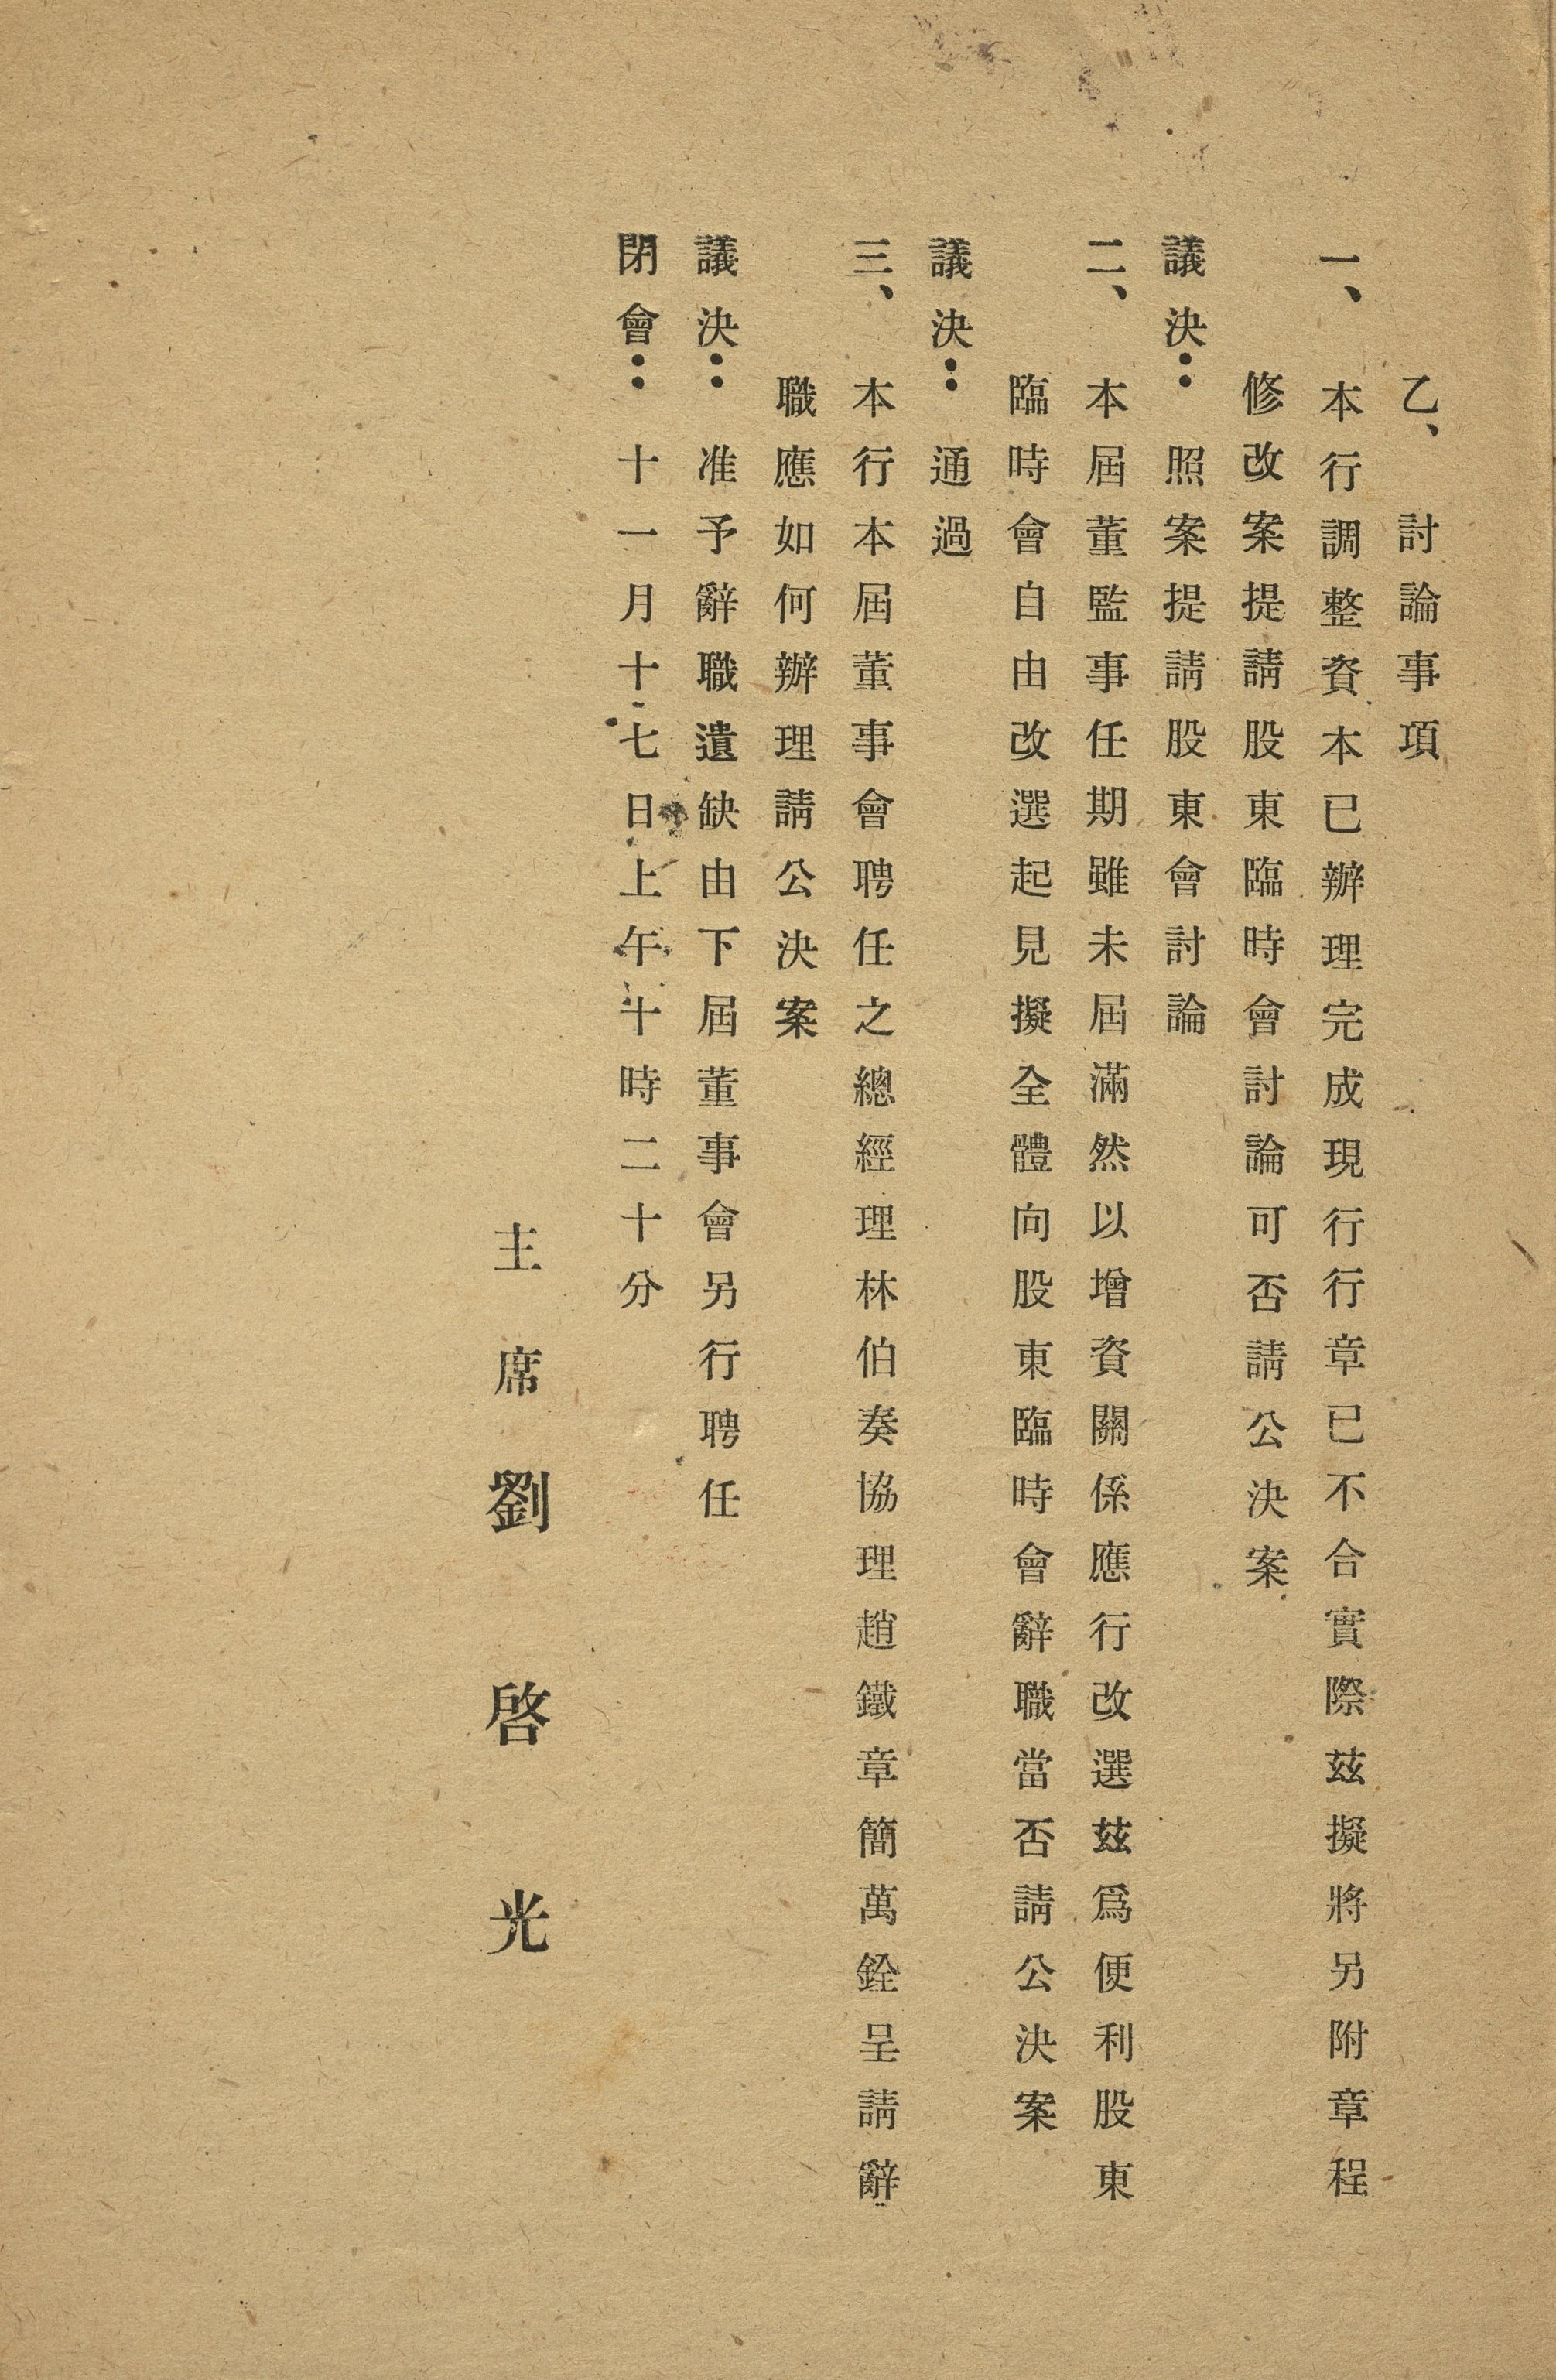 乙、討論事項
一、本行調整資本已辦理完成現行行章已不合實際茲擬將另附章程
修改案提請股東臨時會討論可否請公決案
議決：照案提請股東會討論
二、本屆董監事任期雖未屆滿然以增資關係應行改選茲爲便利股東
臨時會自由改選起見擬全體向股東臨時會辭職當否請公決案
議決：通過
三、本行本屆董事會聘任之總經理林伯奏協理趙鐵章簡萬銓呈請辭
職應如何辦理請公決案
議決：准予辭職遺缺由下屆董事會另行聘任
閉會：十一月十七日上午十時二十分
主席劉啓光